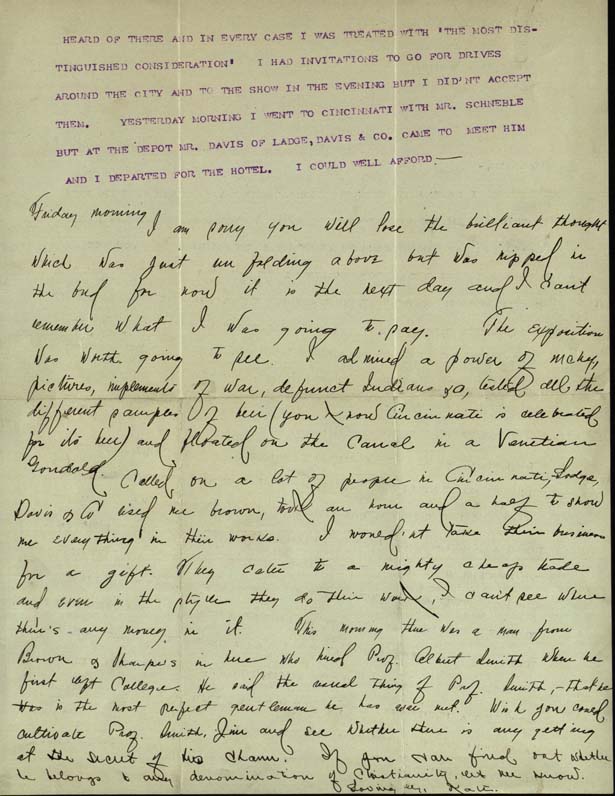 HEARD OF THERE AND IN EVERY CASE I WAS TREATED WITH "THE MOST DIS-
TINGUISHED CONSIDERATION" I HAD INVITATIONS TO GO FOR DRIVES
AROUND THE CITY AND TO THE SHOW IN THE EVENING BUT I DID'NT ACCEPT
THEM. YESTERDAY MORNING I WENT TO CINCINNATI WITH MR. SCHNEBLE
BUT AT THE DEPOT MR. DAVIS OF LADGE, DAVIS & CO. CAME TO MEET HIM
AND I DEPARTED FOR THE HOTEL. I COULD WELL AFFORD.—
Friday morning I am sorry you will lose the brilliant thought
which was just unfolding above but was nipped in
the bud for now it is the next day and I can't
remember what I was going to say. The exposition
was worth going to see. I admired a power of mchy,
pictures, implements of war, defunct Indians &c, tested all the
different samples of beer (you know Cincinnati is celebrated
for its beer) and floated on the canal in a Venetian
Gondola. Called on a lot of people in Cincinnati, Lodge,
Davis & Co used me brown, took an hour and a half to show
me everything in their works. I would'nt take their business
for a gift. They cater to a mighty cheap trade
and even in the style they do their work, I can't see where
there's any money in it. This morning there was a man from
Brown & Sharpe's in here who hired Prof. Albert Smith when he
first left College. He said the usual thing of Prof. Smith,- that he
is the most perfect gentleman he has ever met. Wish you could
cultivate Prof. Smith, Jim and see whether there is any getting
at the secret of his charm. If you can find out whether
he belongs to any denomination of Christianity, let me know.
Lovingly, Kate.